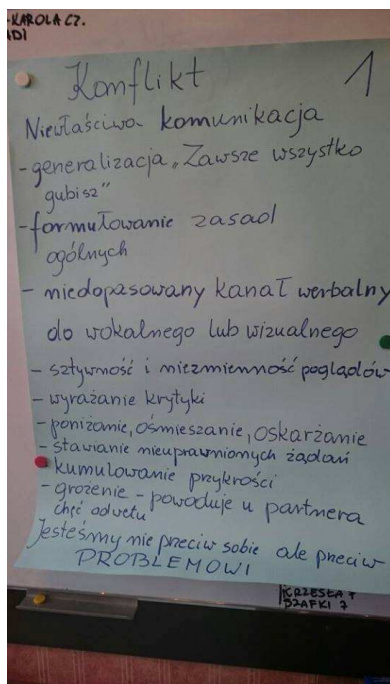 -KAROLA CZ.
ADI
Konflikt 1
Niewłaściwa komunikacja
- generalizacja „Zawsze wszystko
gubisz"
- formułowanie zasad
ogólnych
- niedopasowany kanał werbalny
do wokalnego lub wizualnego
- sztywność i niezmienność poglądów
- wyrażanie krytyki
- poniżanie, ośmieszanie, oskarżanie
- stawianie nieuprawnionych żądań
- kumulowanie przykrości
- grożenie - powoduje u partnera
chęć odwetu
Jesteśmy nie przeciw sobie ale przeciw
PROBLEMOWI
KRZESŁA
SZAFKI 7